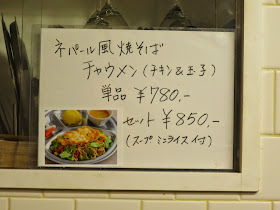 ネパール風焼そば
チャウメン(チキン&玉子)
単品 ¥780.-
セット ¥850.-
(スープ ミニライス 付)